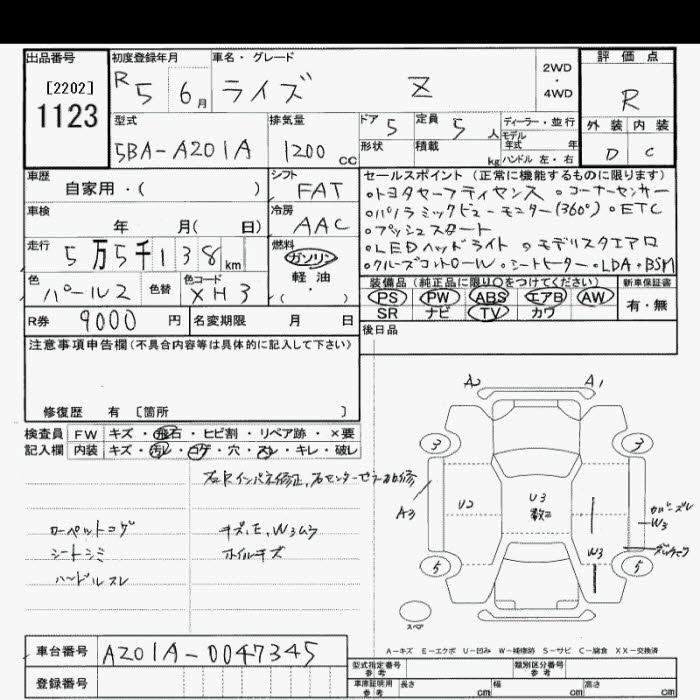 出品番号
[2202]
1123
初度登録年月
R5 6月
車名・グレード
ライズ Z
2WD
・
4WD
評価点
R
外装 内装
D C
型式
5BA-A201A
排気量
1200 cc
ドア 5
定員 5人
形状
積載 kg
ディーラー・並行
モデル
年式 年
ハンドル 左・右
車歴
自家用・( )
シフト
FAT
車検
年 月( 日)
冷房
AAC
走行
5万5千138km
燃料
ガソリン
軽油
・( )
色
パール2
色替
色コード
XH3
R券 9000 円
名変期限 月 日
セールスポイント(正常に機能するものに限ります)
・トヨタセーフティセンス ・コーナーセンサー
・パノラミックビューモニター(360°) ・ETC
・プッシュスタート
・LEDヘッドライト ・モデリスタエアロ
・クルーズコントロール ・シートヒーター ・LDA ・BSM
装備品(純正品に限り○をつけてください)
新車保証書
PS PW ABS エアB AW
SR ナビ TV カワ
有・無
後日品
注意事項申告欄(不具合内容等は具体的に記入して下さい)
修復歴 有 〔箇所 〕
検査員 FW キズ・飛石・ヒビ割・リペア跡・×要
記入欄 内装 キズ・汚レ・コゲ・穴・スレ・キレ・破レ
右Rインパネ修正, 右センターピラー補修
カーペットコゲ
シートシミ
ハンドルスレ
キズ, E, W3ムラ
ホイルキズ
A2 A1
3 3
A3 U2 U3 数コ
W3
W3
5 5
スペア
A-キズ E-エクボ U-凹み W-補修跡 S-サビ C-腐食 XX-交換済
車台番号 A201A-0047345
登録番号
型式指定番号
参考
類別区分番号
参考
車庫証明用
参考
長さ cm 幅 cm 高さ cm